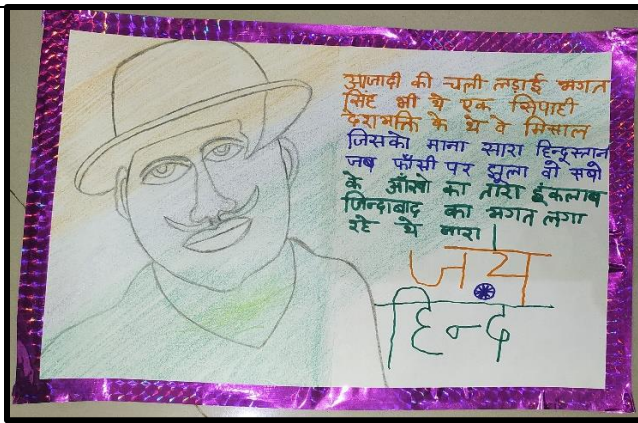 आजादी की चली लड़ाई भगत
सिंह भी थे एक सिपाही
देशभक्ति के थे वे मिसाल
जिसको माना सारा हिन्दूस्तान
जब फाँसी पर झुला वो सबो
के आँखो का तारा इंकलाब
जिन्दाबाद का भगत लगा
रहे थे नारा।
जय
हिन्द